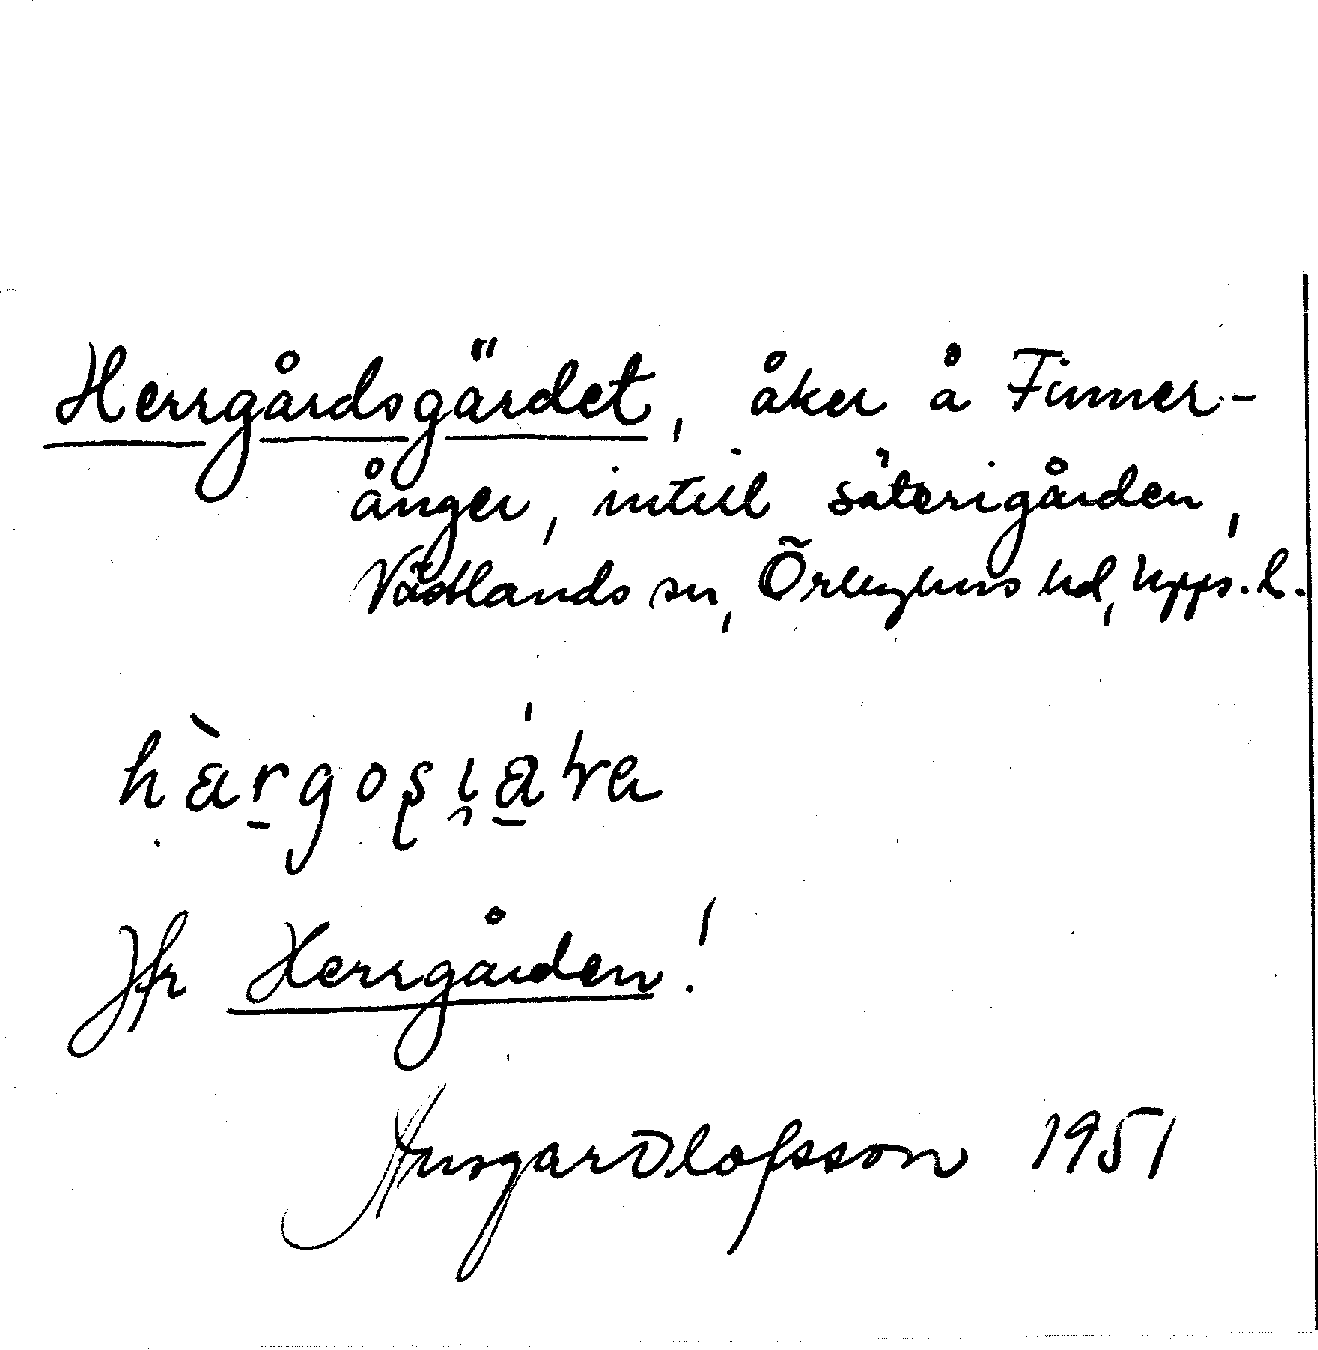 Herrgårdsgärdet, åker å Finner-
ånger, intill säterigården,
Vädlands sn, Örbyhus hd, Upps. l.
hàrgoşi̯átra
Jfr Herrgården!
Ansgar Olofsson 1951